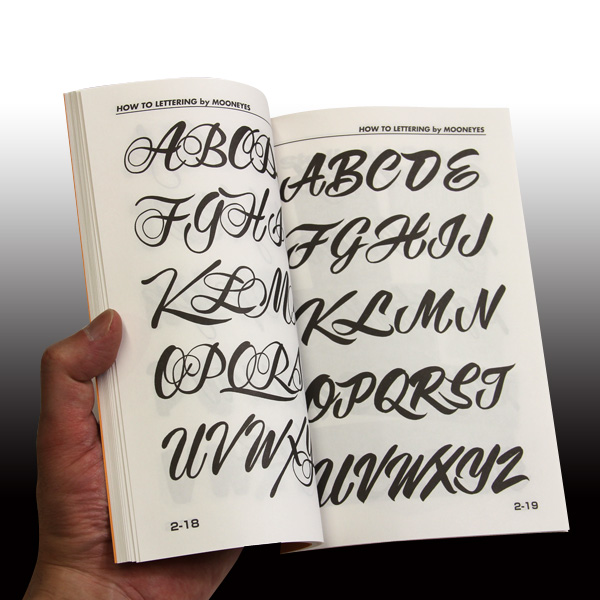 HOW TO LETTERING by MOONEYES
ABCD
FGH
KLM
OPQR
UVWX
2-18
HOW TO LETTERING by MOONEYES
ABCDE
FGHIJ
KLMN
OPQRST
UVWXYZ
2-19